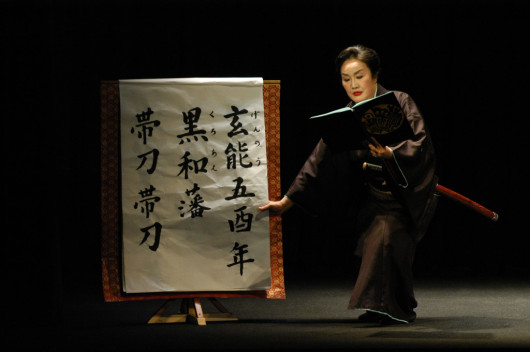 げんのう
玄能五酉年
くろあえ
黒和藩
帯刀帯刀